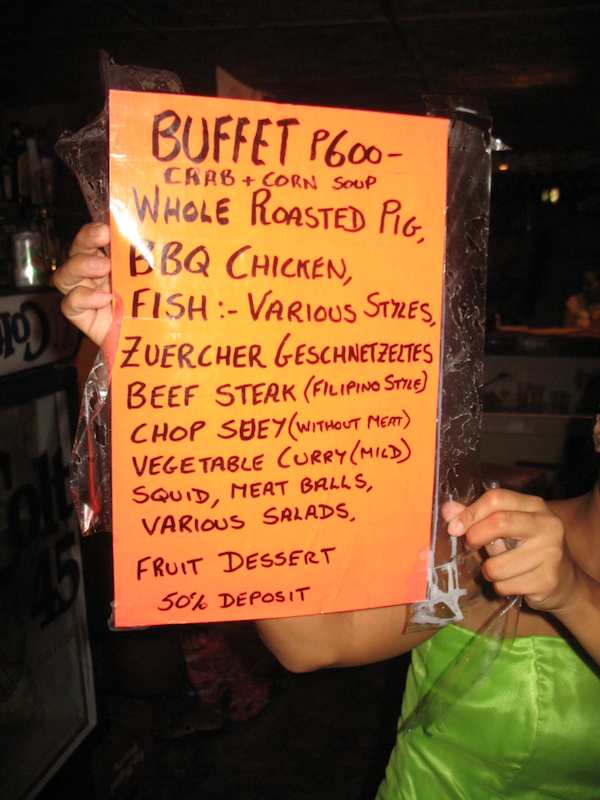 BUFFET P600-
CRAB + CORN SOUP
WHOLE ROASTED PIG,
BBQ CHICKEN,
FISH :- VARIOUS STYLES,
ZUERCHER GESCHNETZELTES
BEEF STEAK (FILIPINO STYLE)
CHOP SUEY (WITHOUT MEAT)
VEGETABLE CURRY (MILD)
SQUID, MEAT BALLS,
VARIOUS SALADS,
FRUIT DESSERT
50% DEPOSIT
Colt
45